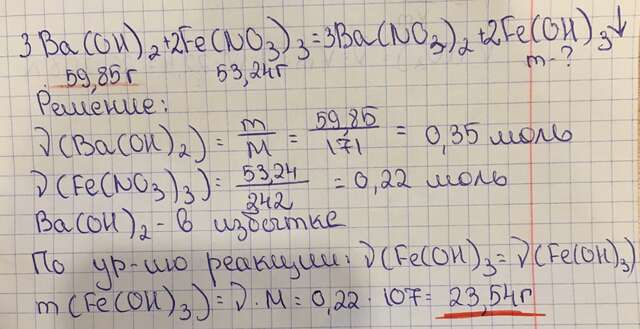 3Ba(OH)2+2Fe(NO3)3=3Ba(NO3)2+2Fe(OH)3↓
59,85г 53,24г m-?
Решение:
ν(Ba(OH)2)= m/M = 59,85/171 = 0,35 моль
ν(Fe(NO3)3)= 53,24/242 = 0,22 моль
Ba(OH)2-в избытке
По ур-ию реакции: ν(Fe(OH)3=ν(Fe(OH)3)
m(Fe(OH)3)=ν·M=0,22·107=23,54г